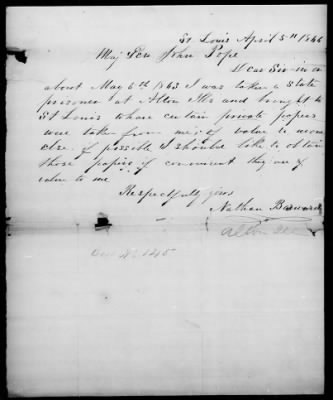 St Louis April 5th 1866
Maj Gen John Pope
Dear Sir - in or
about May 6th 1863 I was taken a state
prisoner at Alton Ills and brought to
St Louis whare certain private papers
were take from me, of value to none
else. if possible I should like to obtain
those papers if convenient they are of
value to me
Respectfully yours
Nathan
Alton Ill
1215